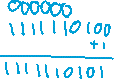 000000
1111110100
+1
1111110101